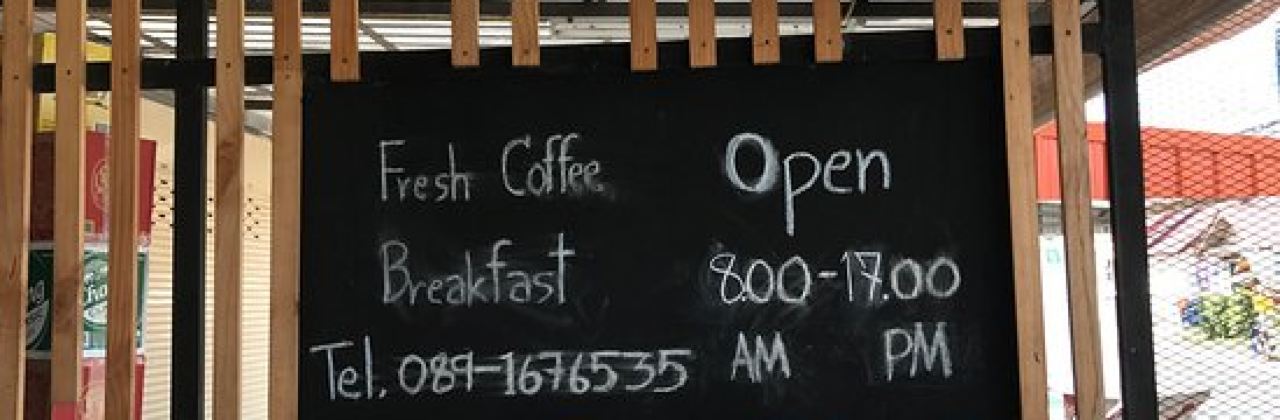 Fresh Coffee
Breakfast
Tel. 089-1676535
Open
8.00-17.00
AM PM